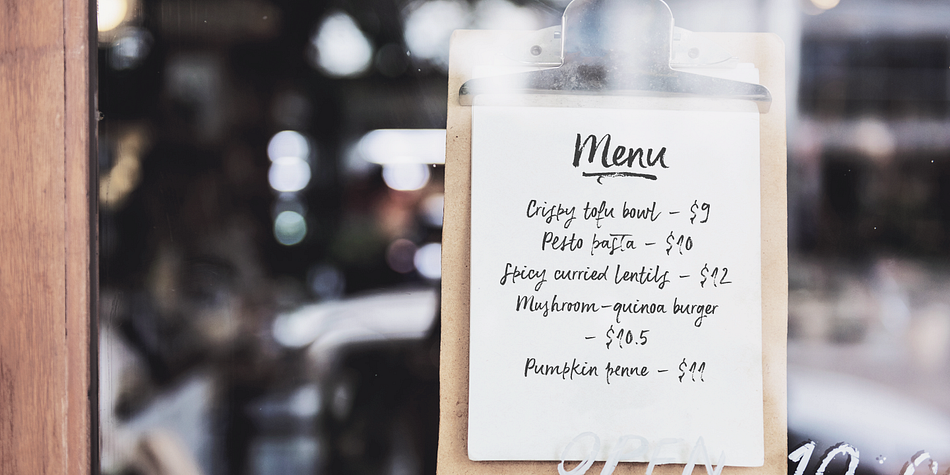 Menu
Crispy tofu bowl – $9
Pesto pasta – $10
Spicy curried lentils – $12
Mushroom-quinoa burger
– $10.5
Pumpkin penne – $11
OPEN